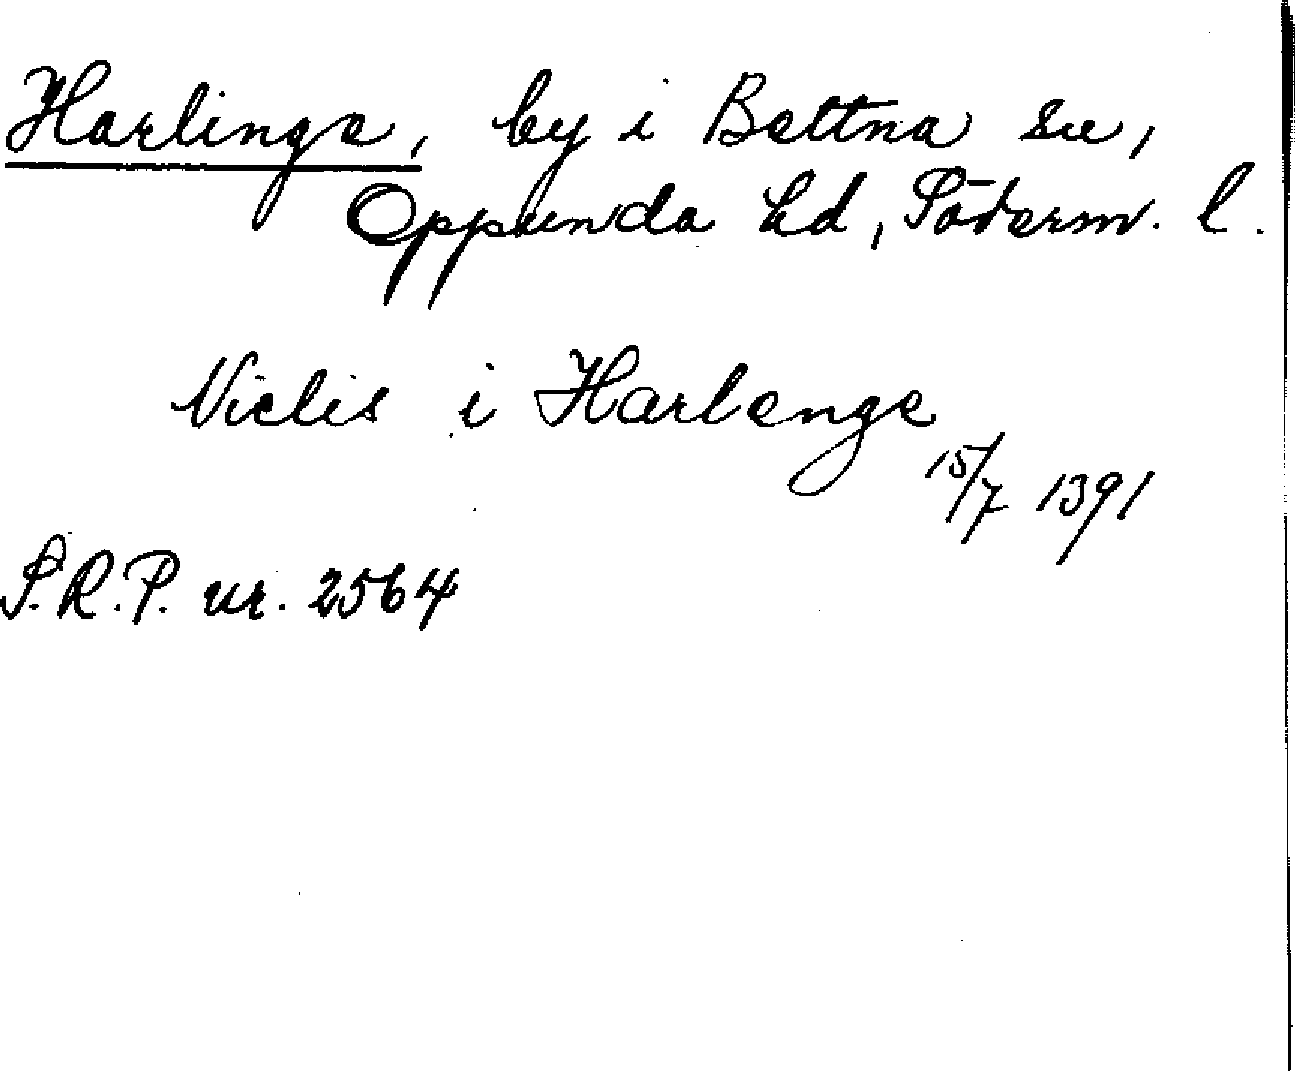 Harlinge, by i Bettna sn,
Oppunda hd, Söderm. l.
Niclis i Harlenge
15/7 1391
S.R.P. nr. 2564